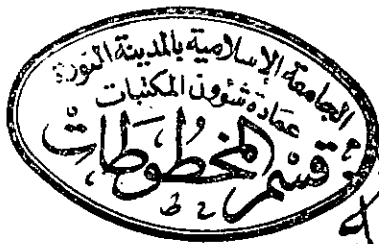 الجامعة الإسلامية بالمدينة النورة
عمادة شؤون المكتبات
قسم المخطوطات